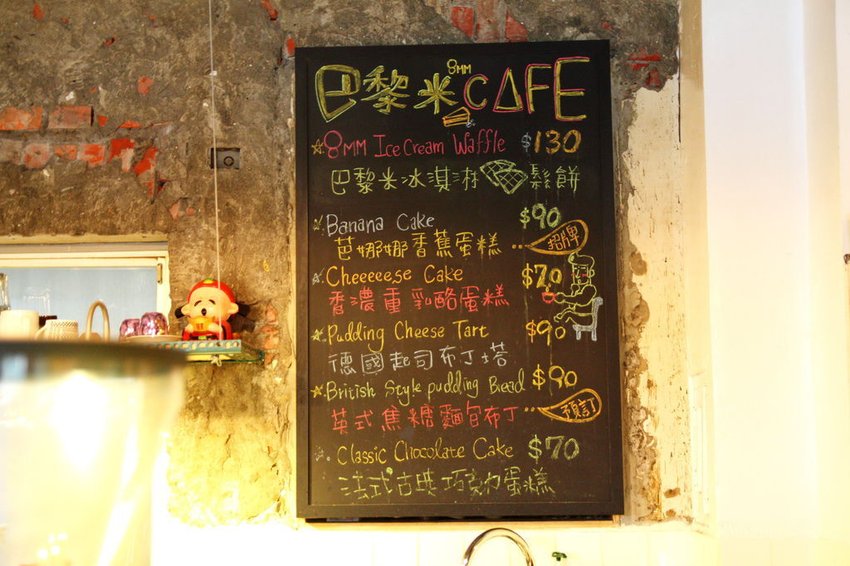 巴黎米 8MM CAFE
8MM Ice Cream Waffle $130
巴黎米冰淇淋鬆餅
Banana Cake $90
芭娜娜香蕉蛋糕 招牌
Cheeeeese Cake $70
香濃重乳酪蛋糕
Pudding Cheese Tart $90
德國起司布丁塔
British Style pudding Bread $90
英式焦糖麵包布丁 預訂
Classic Chocolate Cake $70
法式古典巧克力蛋糕